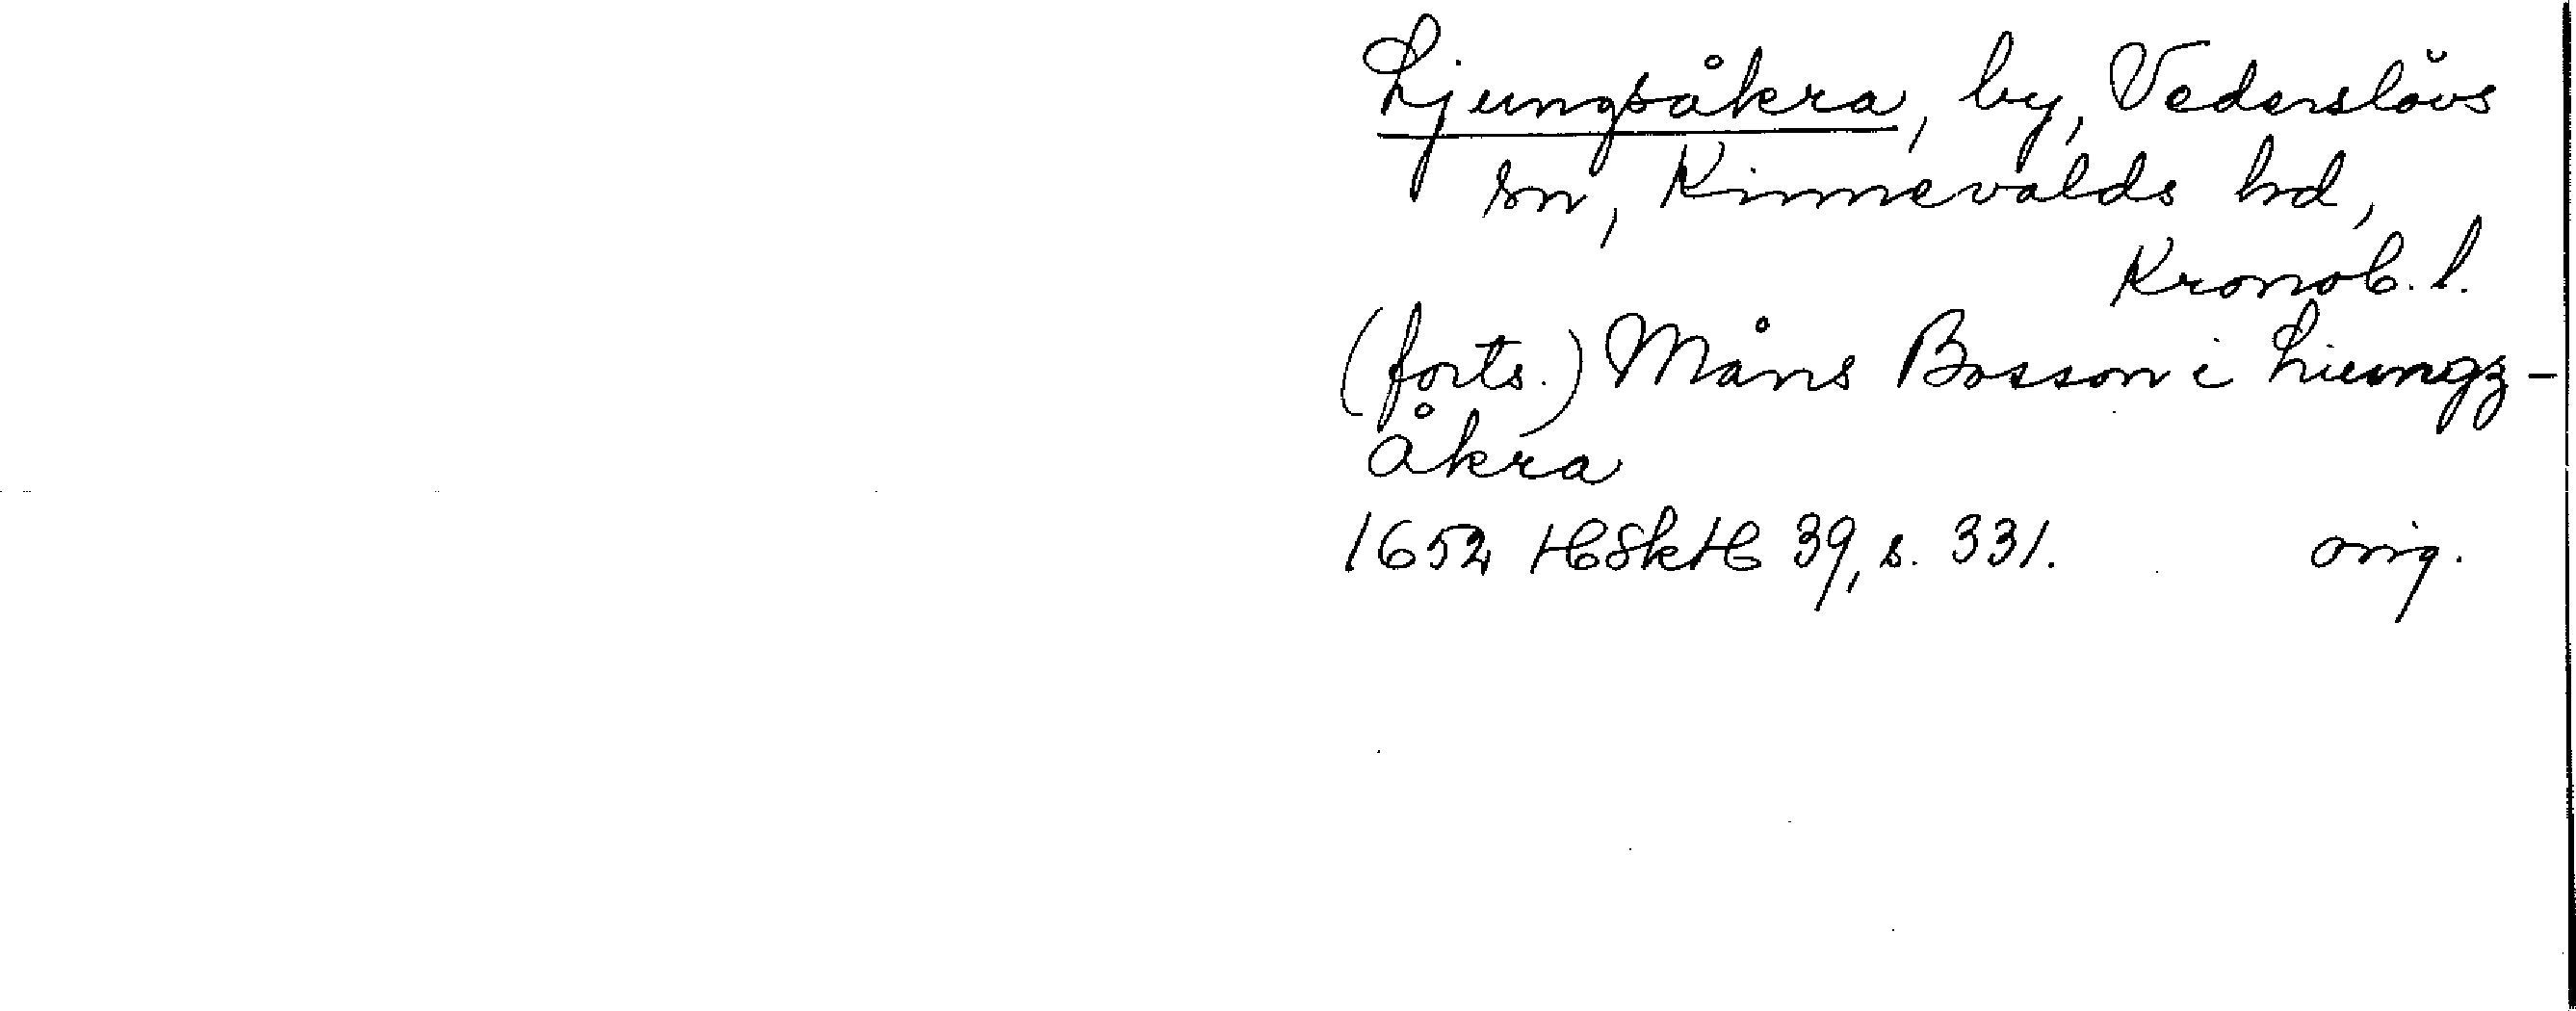 Ljungsåkra, by, Vederslövs
sn, Kinnevalds hd,
Kronob. l.
(forts.) Måns Bosson i Liungz-
åkra
1652 HSkH 39, s. 331. orig.